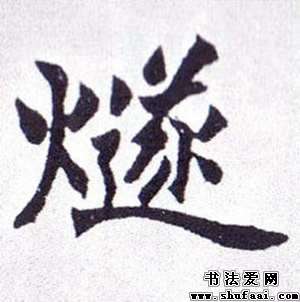 燧
书法爱网
www.shufaai.com